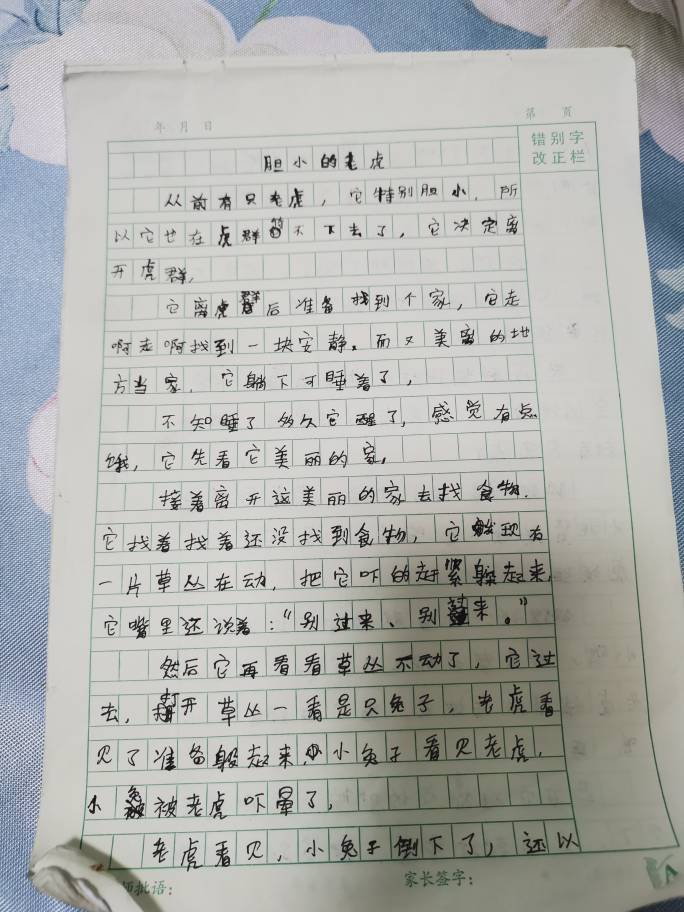 年 月 日 第 页
错别字
改正栏
胆小的老虎
从前有只老虎，它特别胆小，所
以它也在虎群待不下去了，它决定离
开虎群，
它离虎群后准备找到个家，它走
啊走啊找到一块安静，而又美离的地
方当家，它躺下可睡着了，
不知睡了多久它醒了，感觉有点
饿，它先看它美丽的家，
接着离开这美丽的家去找食物，
它找着找着还没找到食物，它发现有
一片草丛在动，把它吓的赶紧躲起来，
它嘴里还说着：“别过来、别过来。”
然后它再看看草丛不动了，它过
去，打开草丛一看是只兔子，老虎看
见了准备躲起来，小兔子看见老虎，
小兔被老虎吓晕了，
老虎看见，小兔子倒下了，还以
师批语： 家长签字：